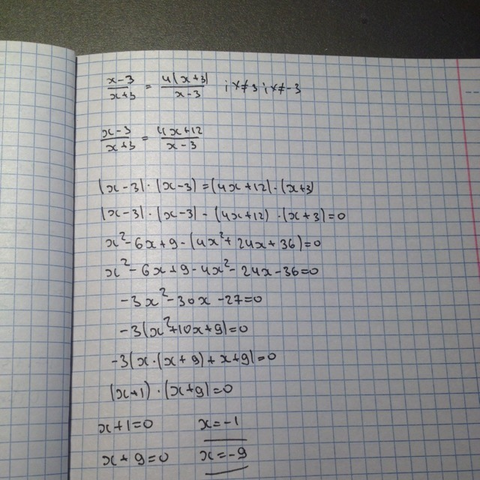 x-3/x+3 = 4(x+3)/x-3 ; x≠3 ; x≠-3
x-3/x+3 = 4x+12/x-3
(x-3)·(x-3)=(4x+12)·(x+3)
(x-3)·(x-3)-(4x+12)·(x+3)=0
x²-6x+9-(4x²+24x+36)=0
x²-6x+9-4x²-24x-36=0
-3x²-30x-27=0
-3(x²+10x+9)=0
-3(x·(x+9)+x+9)=0
(x+1)·(x+9)=0
x+1=0 x=-1
x+9=0 x=-9